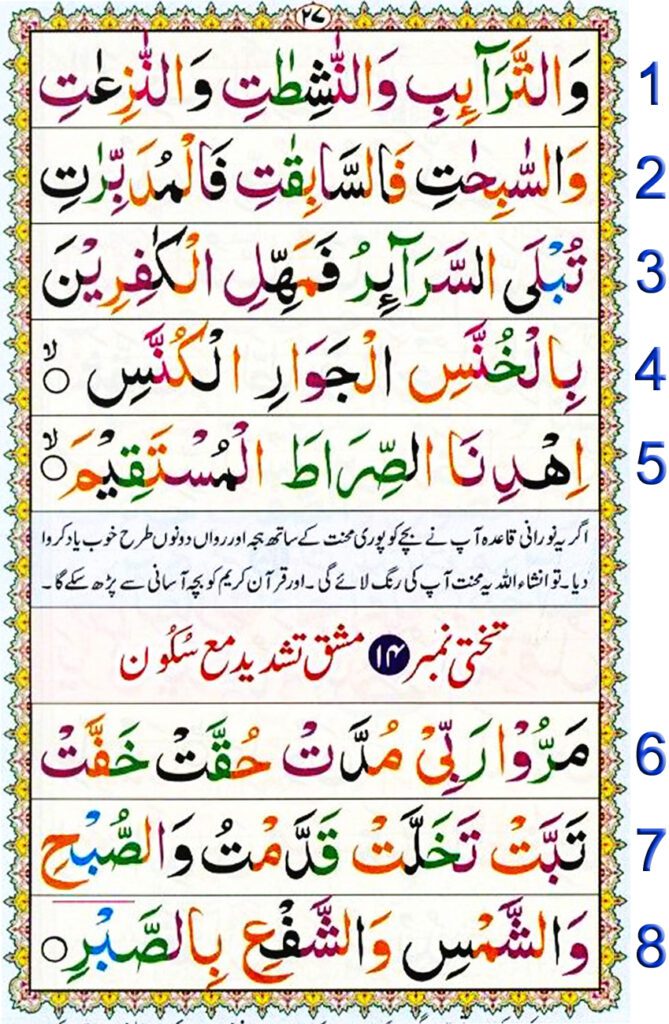 ٢٧
وَالتَّرَآئِبِ وَالنّٰشِطٰتِ وَالنّٰزِعٰتِ 1
وَالسّٰبِحٰتِ فَالسَّابِقٰتِ فَالْمُدَبِّرٰتِ 2
تُبْلَى السَّرَآئِرُ فَمَهِّلِ الْكٰفِرِيْنَ 3
بِالْخُنَّسِ الْجَوَارِ الْكُنَّسِ ○ۙ 4
اِهْدِنَا الصِّرَاطَ الْمُسْتَقِيْمَ ○ۙ 5
اگر یہ نورانی قاعدہ آپ نے بچے کو پوری محنت کے ساتھ ہجہ اور رواں دونوں طرح خوب یاد کروا
دیا۔ تو انشاء اللہ یہ محنت آپ کی رنگ لائے گی۔ اور قرآن کریم کو بچہ آسانی سے پڑھ سکے گا۔
تختی نمبر ۱۴ مشق تشدید مع سُکُون
مَرُّوْا رَبِّيْ مُدَّتْ حُقَّتْ خَفَّتْ 6
تَبَّتْ تَخَلَّتْ قَدَّمْتُ وَالصُّبْحِ 7
وَالشَّمْسِ وَالشَّفْعِ بِالصَّبْرِ ○ 8